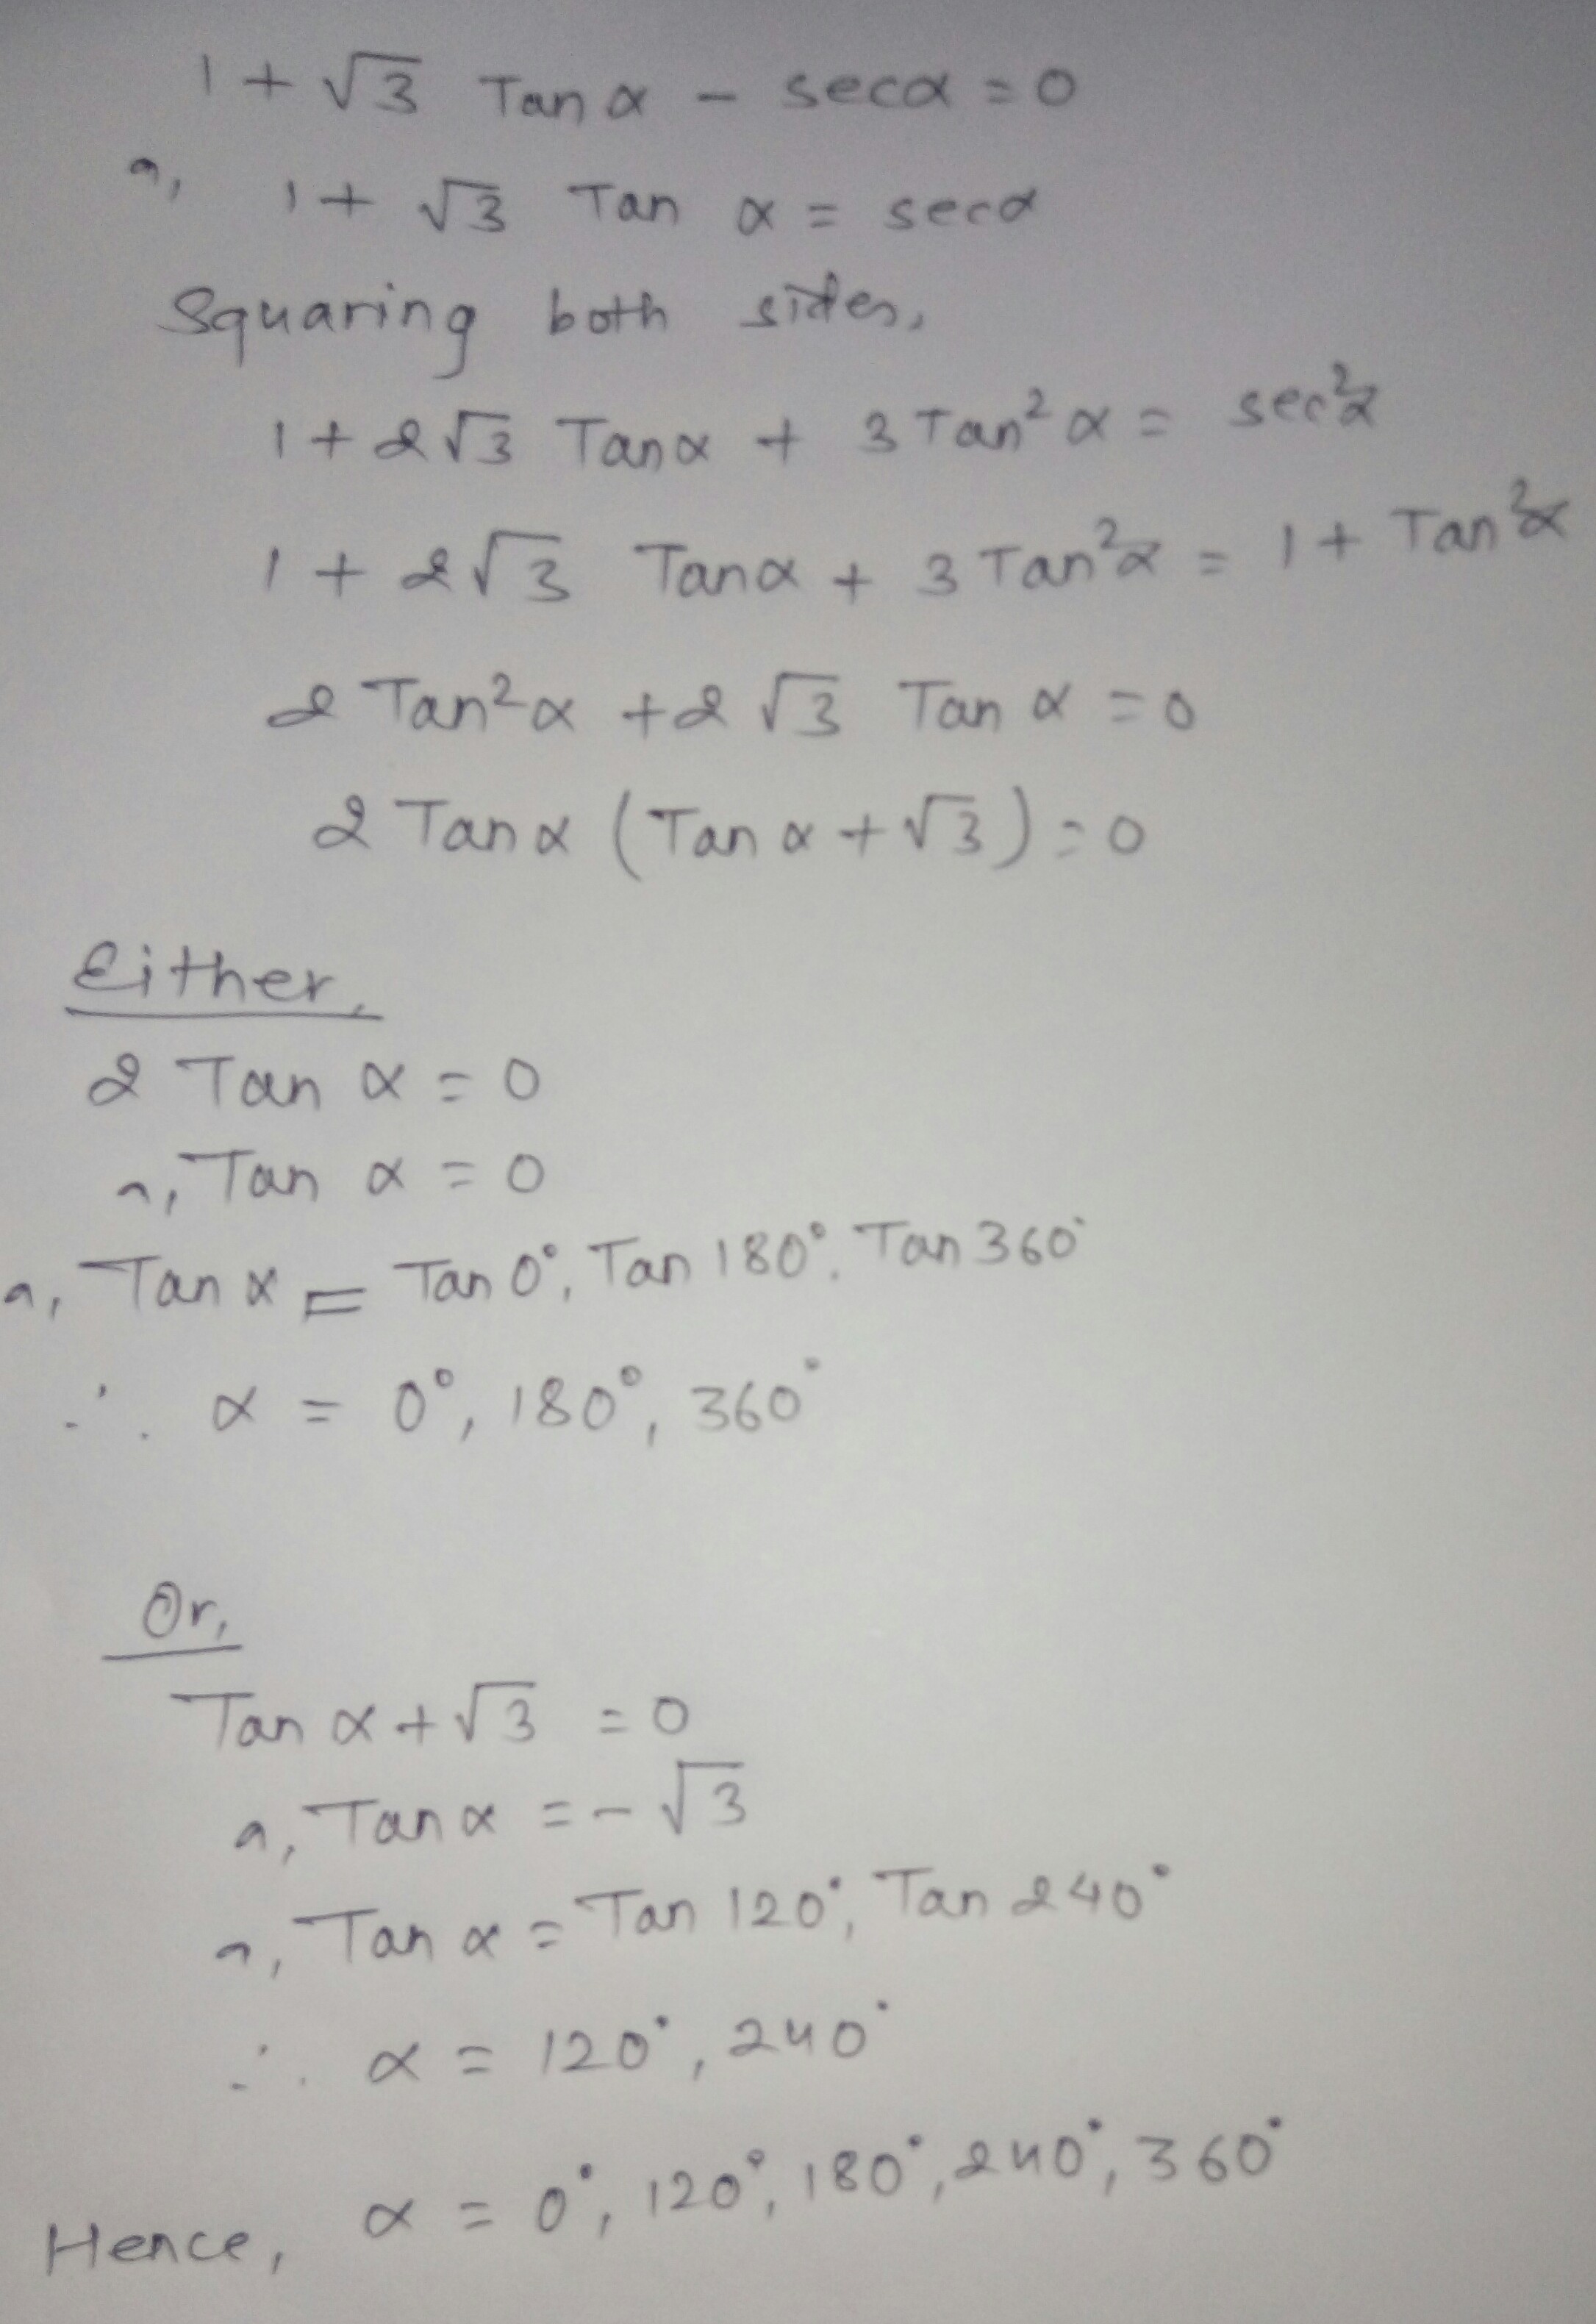 1 + √3 Tan α - secα = 0
or, 1 + √3 Tan α = secα
Squaring both sides,
1 + 2√3 Tanα + 3 Tan²α = sec²α
1 + 2√3 Tanα + 3 Tan²α = 1 + Tan²α
2 Tan²α + 2√3 Tan α = 0
2 Tanα (Tan α + √3) = 0
Either,
2 Tan α = 0
or, Tan α = 0
or, Tan α = Tan 0°, Tan 180°, Tan 360°
∴ α = 0°, 180°, 360°
Or,
Tan α + √3 = 0
or, Tan α = -√3
or, Tan α = Tan 120°, Tan 240°
∴ α = 120°, 240°
Hence, α = 0°, 120°, 180°, 240°, 360°